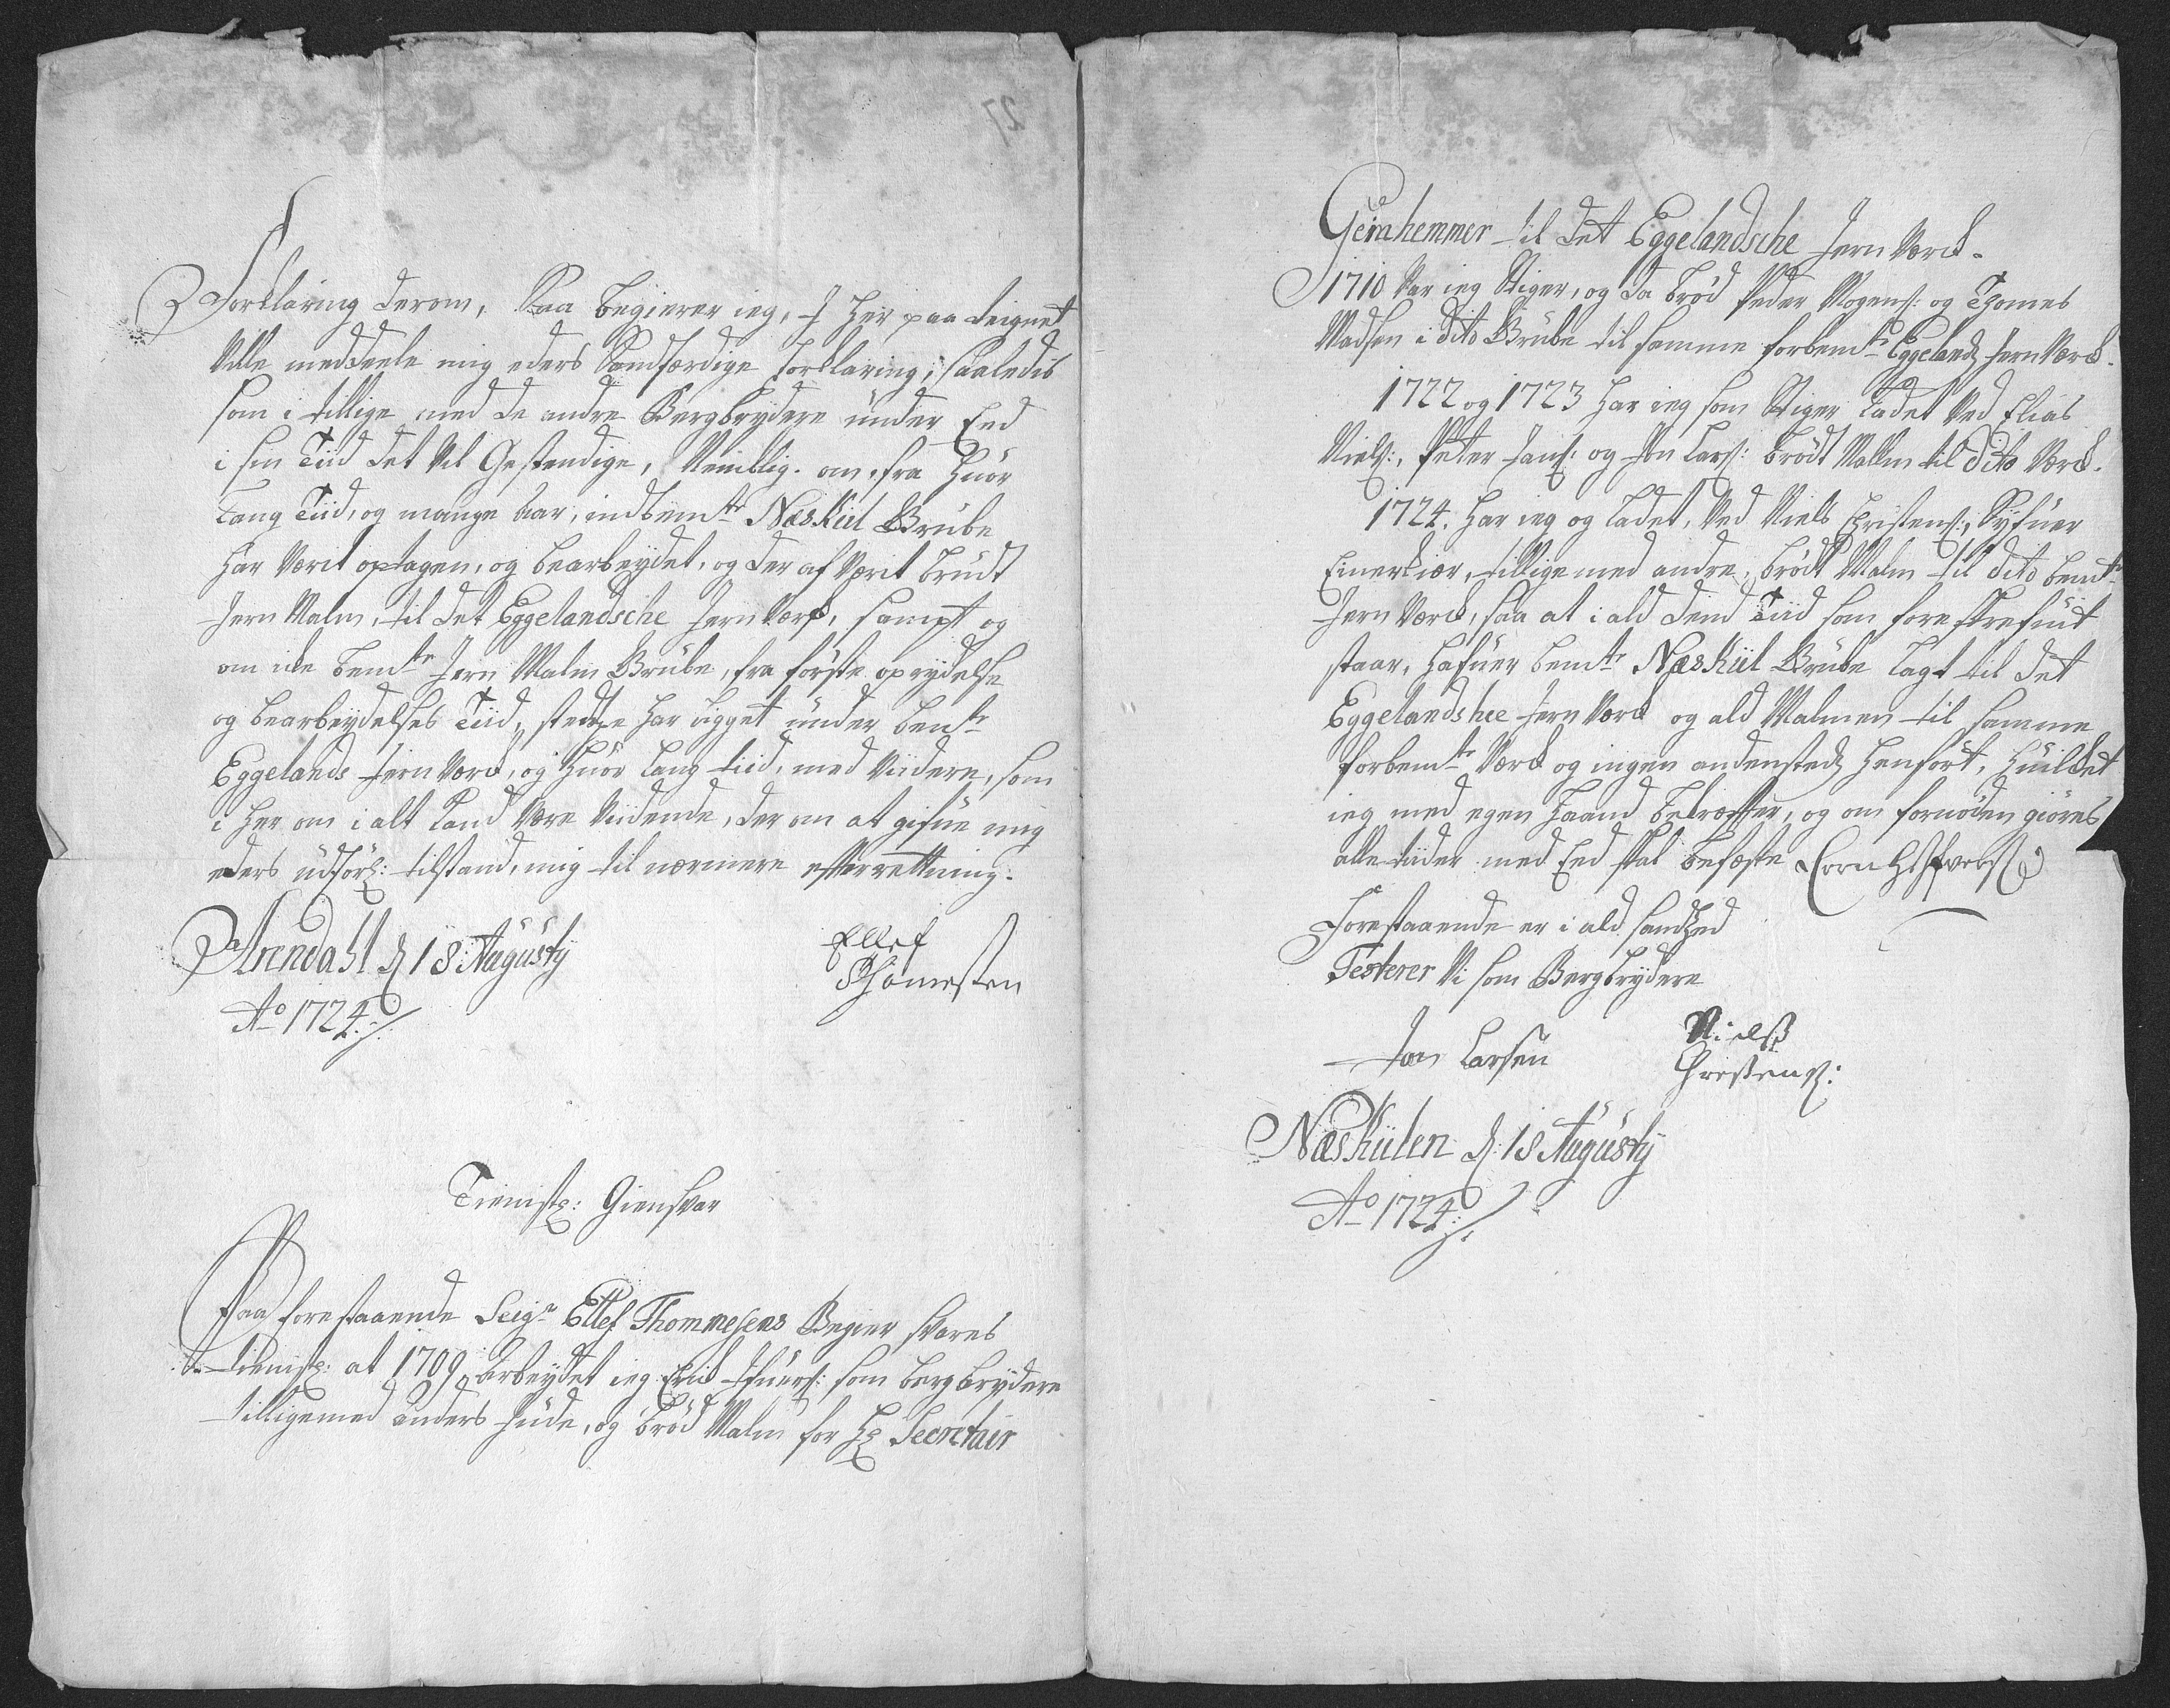 27
Forklaring derom, Saa begierer ieg, I her paa teignet
Ville meddeele mig eders Sandfærdige forklaring, saaledis
som i tillige med de andre Bergbrydere under Eed
i sin Tiid det Vil Gestendige, Nemblig. om, fra huor
Lang Tiid, og mange Aar, indbemte Næskiil Grube
har Værit optagen, og bearbeydet, og der af Værit brudt
Jern Malm, til det Eggelandsche Jernværk, sampt og
om icke bemte Jern Malm Grube, fra förste oprydelse
og bearbeydelses Tiid, stedtze har Ligget under bemte
Eggelands Jern Værck, og huor Lang tiid, med Viidere, som
i her om i alt Kand Være Viidende, der om at gifue mig
eders udförl: tilstand, mig til nærmere efterrettning.
Arendahl d 18 Augusty
Ao 1724
Ellef
Thomesten
Tienistl: Giensvar
Paa forestaaende Seigr Ellef Thommesens Begier svares
tienistl: at 1709, arbeydet ieg Erich Ifuers: som bergbrydere
tilligemed Anders Hude, og bröd Malm for Hr Secretair
Gernhemmer til det Eggelandsche Jern Værck.
1710 Var ieg Stiger, og da bröd Peder Mogens: og Thomes
Madsen i dito Grube til samme forbemte Eggelands Jern Værck.
1722 og 1723 har ieg som Stiger Ladet Ved Elias
Niels:, Peter Jans: og Jon Lars: brödt Malm til dito Værck.
1724. har ieg og Ladet, Ved Niels Christens:, Syfuer
Einerkiær, tillige med andre, brödt Malm til dito bemte
Jern Værck, saa at i ald dend Tiid som foreskrefuit
staar, hafuer bemte Næskiil Grube Lagt til det
Eggelandshee Jern Værck og ald Malmen til samme
forbemte Værck og ingen andensteds henfört, huilcket
ieg med egen haand bekræffter, og om fornöden giöres
alle tiider med Eed skal befæste
Forestaaende er i ald sandhed
Testerer Vi som Bergbrydere
Jon Larsen
Nielß
Christens:
Næskiilen d: 18 Augusty
Ao 1724